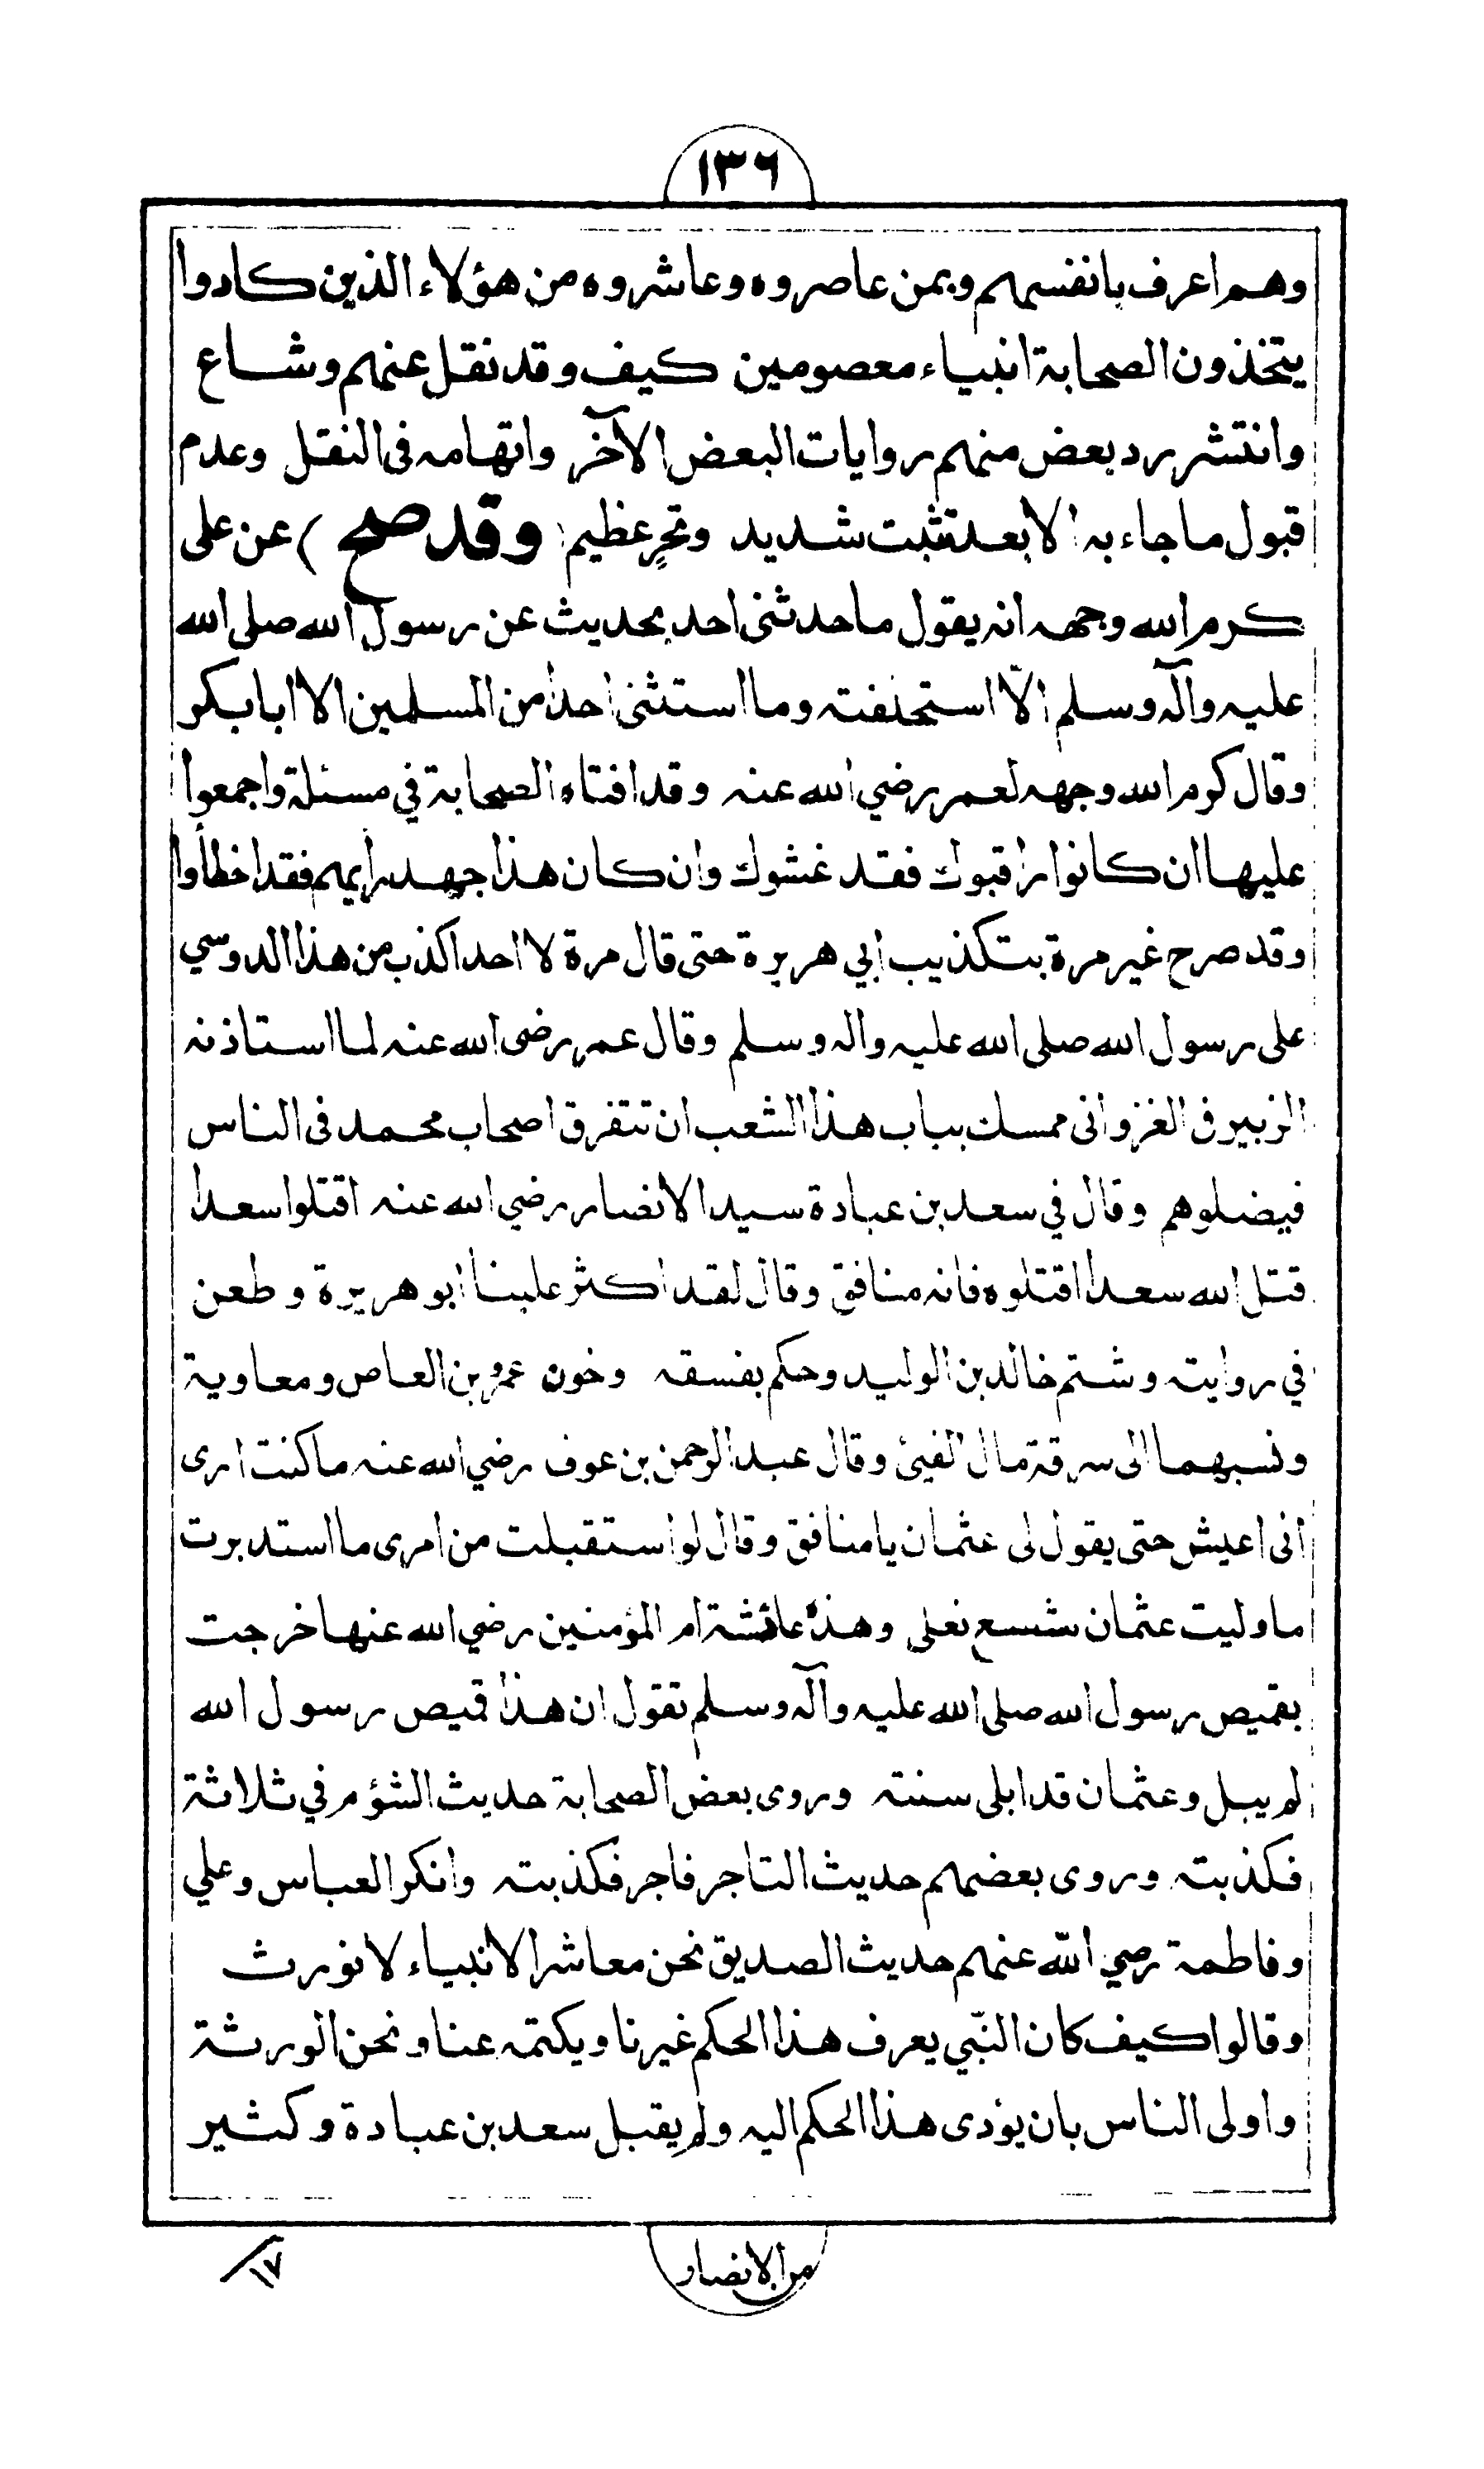 ١٣٦
وهم اعرف بانفسهم وبمن عاصروه وعاشروه من هؤلاء الذين كادوا
يتخذون الصحابة انبياء معصومين كيف وقد نقل عنهم وشاع
وانتشر رد بعض منهم روايات البعض الآخر واتهامه فى النقل وعدم
قبول ما جاء به الا بعد تثبت شديد وتحرٍ عظيم (وقد صح) عن على
كرم الله وجهه انه يقول ما حدثنى احد بحديث عن رسول الله صلى الله
عليه وآله وسلم الّا استحلفته وما استثنى احدا من المسلمين الا ابا بكر
وقال كرم الله وجهه لعمر رضي الله عنه وقد افتاه الصحابة في مسئلة واجمعوا
عليها ان كانوا راقبوك فقد غشوك وان كان هذا جهد رأيهم فقد اخطأوا
وقد صرح غير مرة بتكذيب ابي هريرة حتى قال مرة لا احد اكذب من هذا الدوسي
على رسول الله صلى الله عليه واله وسلم وقال عمر رضى الله عنه لما استاذنه
الزبير فى الغزو انى ممسك بباب هذا الشعب ان تتفرق اصحاب محمد فى الناس
فيضلوهم وقال في سعد بن عبادة سيد الانصار رضي الله عنه اقتلوا سعدا
قتل الله سعدا اقتلوه فانه منافق وقال لقد اكثر علينا ابو هريرة وطعن
في روايته وشتم خالد بن الوليد وحكم بفسقه وخون عمرو بن العاص ومعاوية
ونسبهما الى سرقة مال الفيئ وقال عبد الرحمن بن عوف رضي الله عنه ما كنت ارى
انى اعيش حتى يقول لى عثمان يا منافق وقال لو استقبلت من امرى ما استدبرت
ما وليت عثمان شسع نعلى وهذه عائشة ام المؤمنين رضي الله عنها خرجت
بقميص رسول الله صلى الله عليه وآله وسلم تقول ان هذا قميص رسول الله
لم يبل وعثمان قد ابلى سنته وروى بعض الصحابة حديث الشؤم في ثلاثة
فكذبته وروى بعضهم حديث التاجر فاجر فكذبته وانكر العباس وعلي
وفاطمة رضي الله عنهم حديث الصديق نحن معاشر الانبياء لا نورث
وقالوا كيف كان النبّي يعرف هذا الحكم غيرنا ويكتمه عنا ونحن الورثة
واولى الناس بان يؤدى هذا الحكم اليه ولم يقبل سعد بن عبادة وكثير
من الانصار
١٧